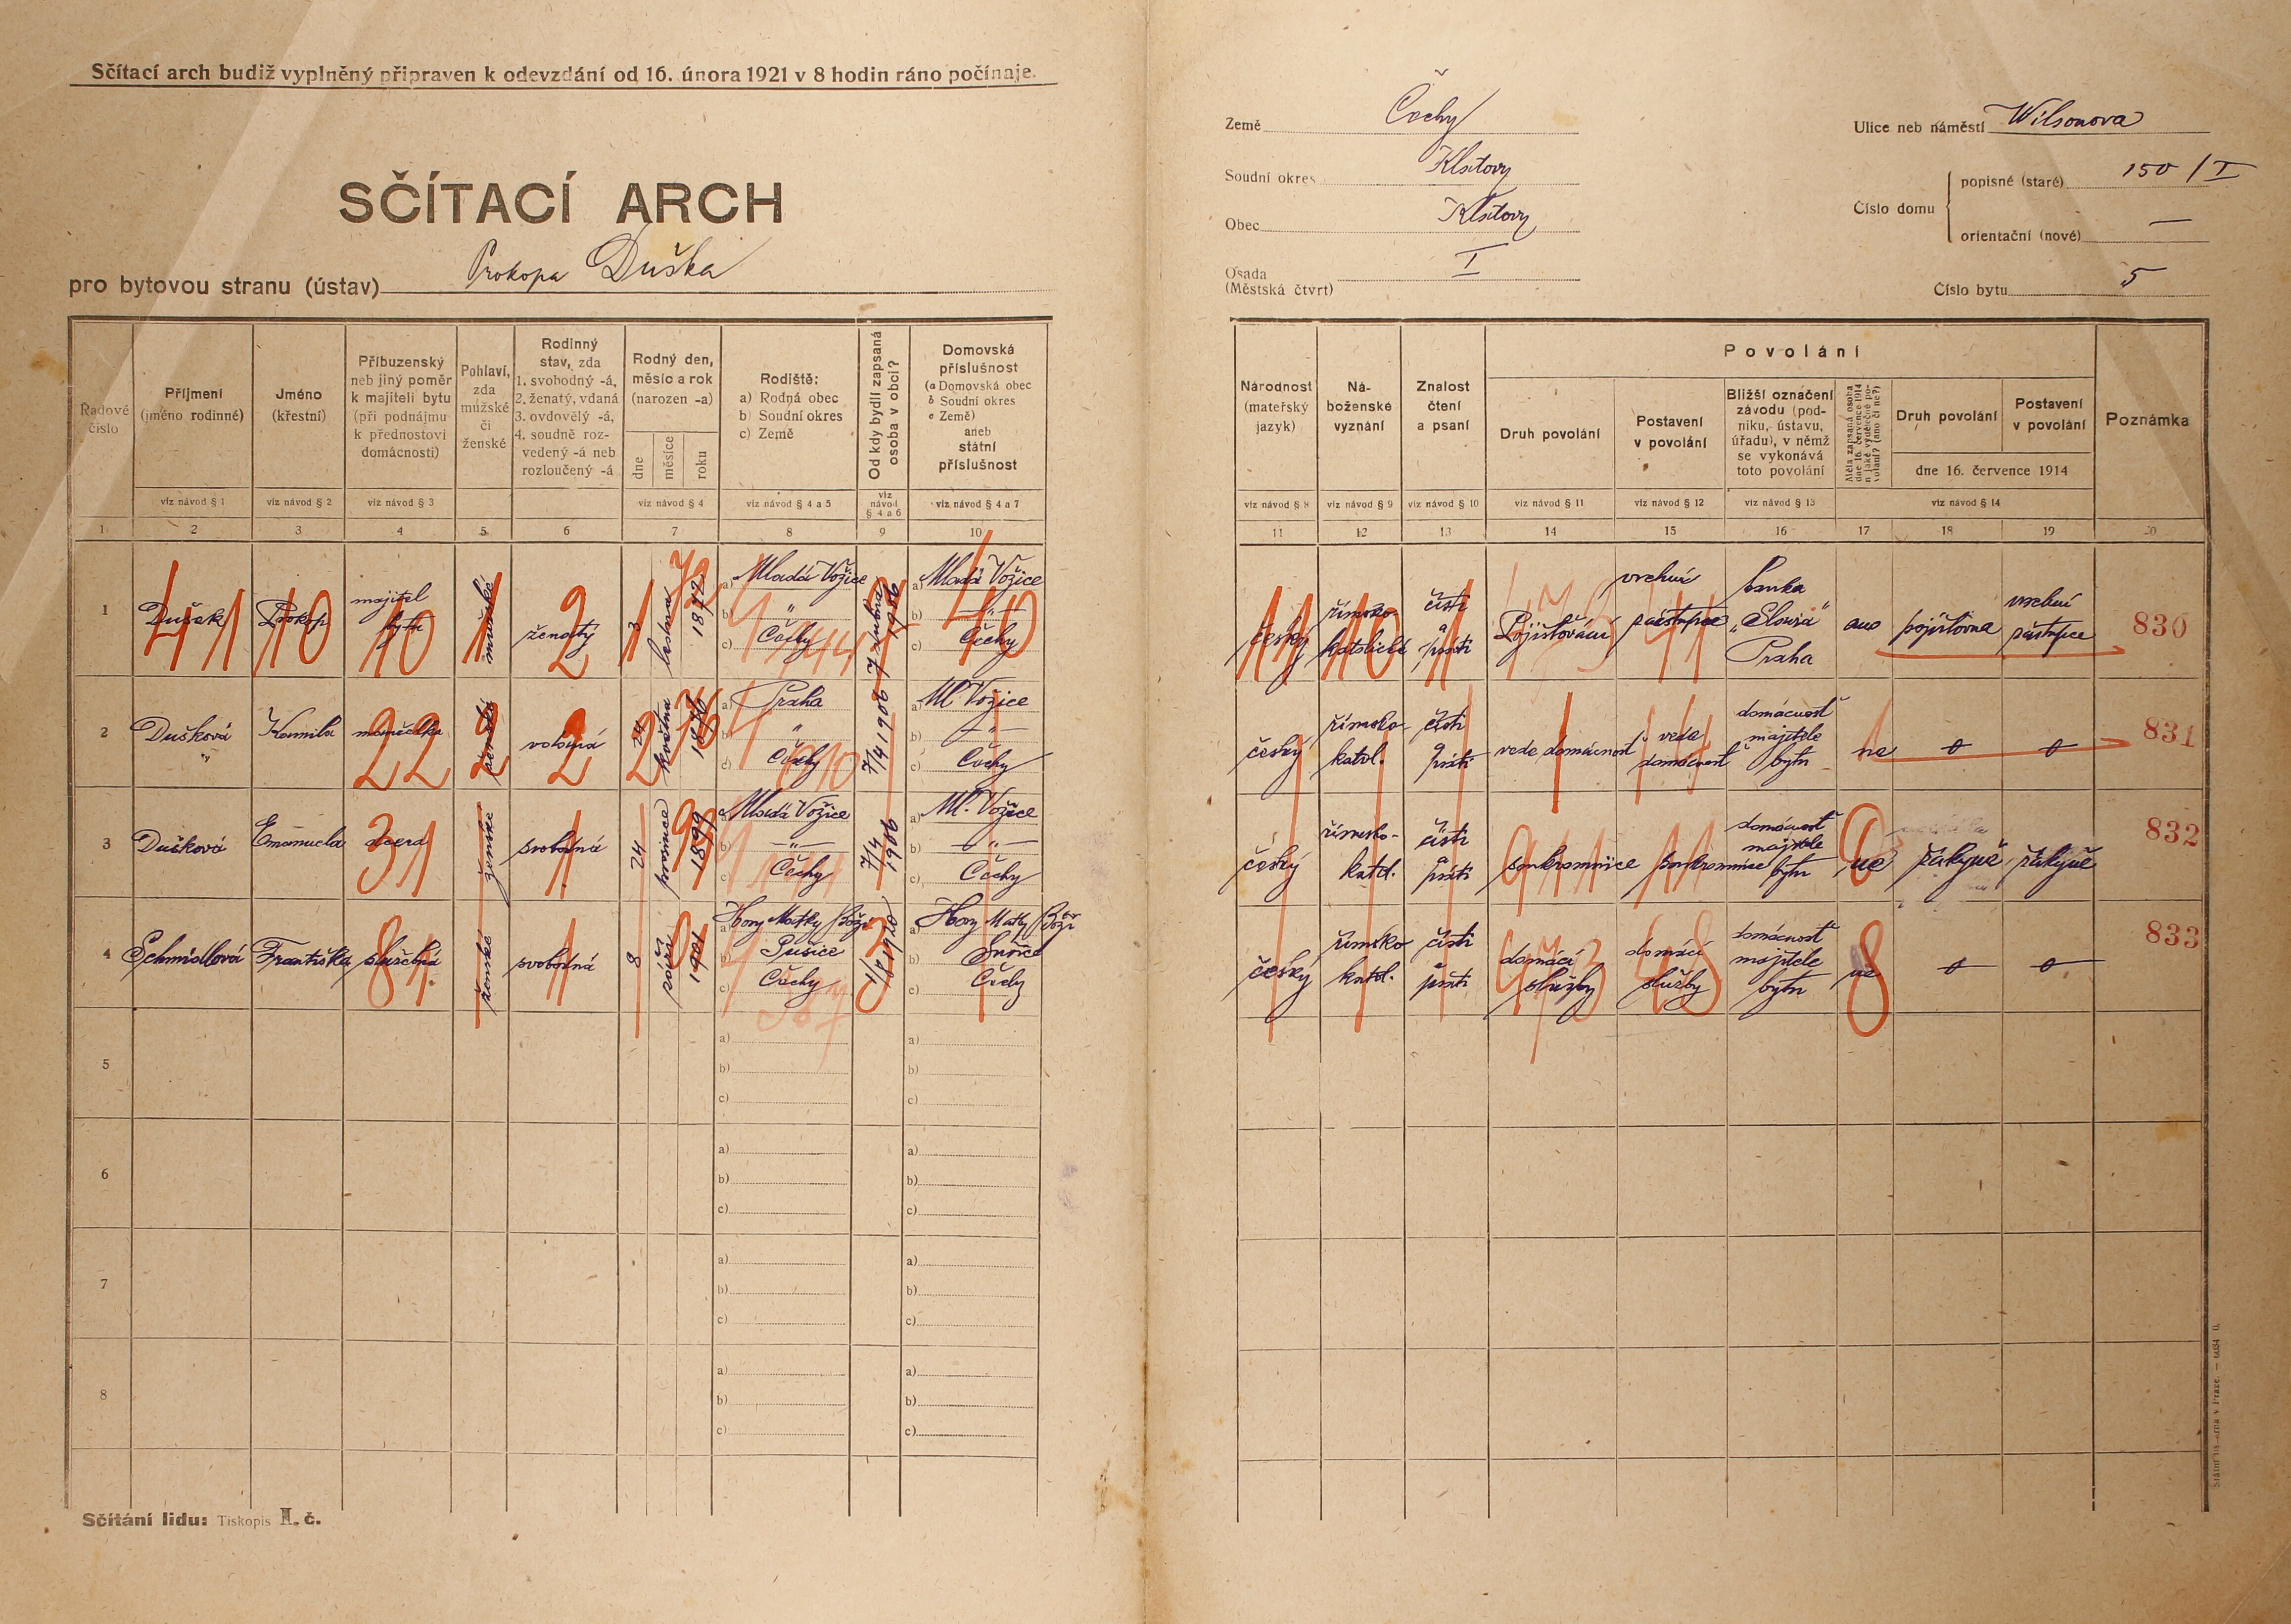 Sčítací arch budiž vyplněný připraven k odevzdání od 16. února 1921 v 8 hodin ráno počínaje.
SČÍTACÍ ARCH
pro bytovou stranu (ústav) Prokopa Duška
Země Čechy
Soudní okres Klatovy
Obec Klatovy
Osada
(Městská čtvrt) I
Ulice neb náměstí Wilsonova
Číslo domu
popisné (staré) 150/I
orientační (nové) —
Číslo bytu 5
Řadové
číslo
Příjmení
(jméno rodinné)
Jméno
(křestní)
Příbuzenský
neb jiný poměr
k majiteli bytu
(při podnájmu
k přednostovi
domácnosti)
Pohlaví,
zda
mužské
či
ženské
Rodinný
stav, zda
1. svobodný -á,
2. ženatý, vdaná
3. ovdovělý -á,
4. soudně roz-
vedený -á neb
rozloučený -á
Rodný den,
měsíc a rok
(narozen -a)
dne
měsíce
roku
Rodiště:
a) Rodná obec
b) Soudní okres
c) Země
Od kdy bydlí zapsaná
osoba v obci?
Domovská
příslušnost
(a Domovská obec
b Soudní okres
c Země)
aneb
státní
příslušnost
viz návod § 1
viz návod § 2
viz návod § 3
viz návod § 4
viz návod § 4 a 5
viz
návod
§ 4 a 6
viz návod § 4 a 7
1 2 3 4 5 6 7 8 9 10
Národnost
(mateřský
jazyk)
Ná-
boženské
vyznání
Znalost
čtení
a psaní
Povolání
Druh povolání
Postavení
v povolání
Bližší označení
závodu (pod-
niku, ústavu,
úřadu), v němž
se vykonává
toto povolání
Měla zapsaná osoba
dne 16. července 1914
nějaké výdělečné po-
volání? (ano či ne?)
Druh povolání
Postavení
v povolání
dne 16. července 1914
Poznámka
viz návod § 8
viz návod § 9
viz návod § 10
viz návod § 11
viz návod § 12
viz návod § 13
viz návod § 14
11 12 13 14 15 16 17 18 19 20
1 Dušek Prokop majitel bytu mužské ženatý 3 1872
a) Mladá Vožice
b) "
c) Čechy
7 dubna 1906
a) Mladá Vožice
b) — " —
c) Čechy
český římsko-katolické čísti a psáti Pojišťování vrchní zástupce banka „Slavia" Praha ano pojišťovna vrchní zástupce 830
2 Dušková Kamila manželka ženské 24 května 1876
a) Praha
b) "
c) Čechy
7/4 1906
a) Ml. Vožice
b) — " —
c) Čechy
český římsko-katol. čísti psáti vede domácnost vede domácnost domácnost majitele bytu ne 0 0 831
3 Dušková Emanuela dcera ženské svobodná 24 prosince 1899
a) Mladá Vožice
b) — " —
c) Čechy
7/4 1906
a) Ml. Vožice
b) — " —
c) Čechy
český římsko-katol. čísti a psáti soukromnice soukromnice domácnost majitele bytu ne žákyně žákyně 832
4 Schmidlová Františka služebná ženské svobodná 8 září 1901
a) Hory Matky Boží
b) Sušice
c) Čechy
1920
a) Hory Matky Boží
b) Sušice
c) Čechy
český římsko katol. čísti a psáti domácí služby domácí služby domácnost majitele bytu ne 0 0 833
5
a)
b)
c)
a)
b)
c)
6
a)
b)
c)
a)
b)
c)
7
a)
b)
c)
a)
b)
c)
8
a)
b)
c)
a)
b)
c)
Sčítání lidu: Tiskopis II. č.